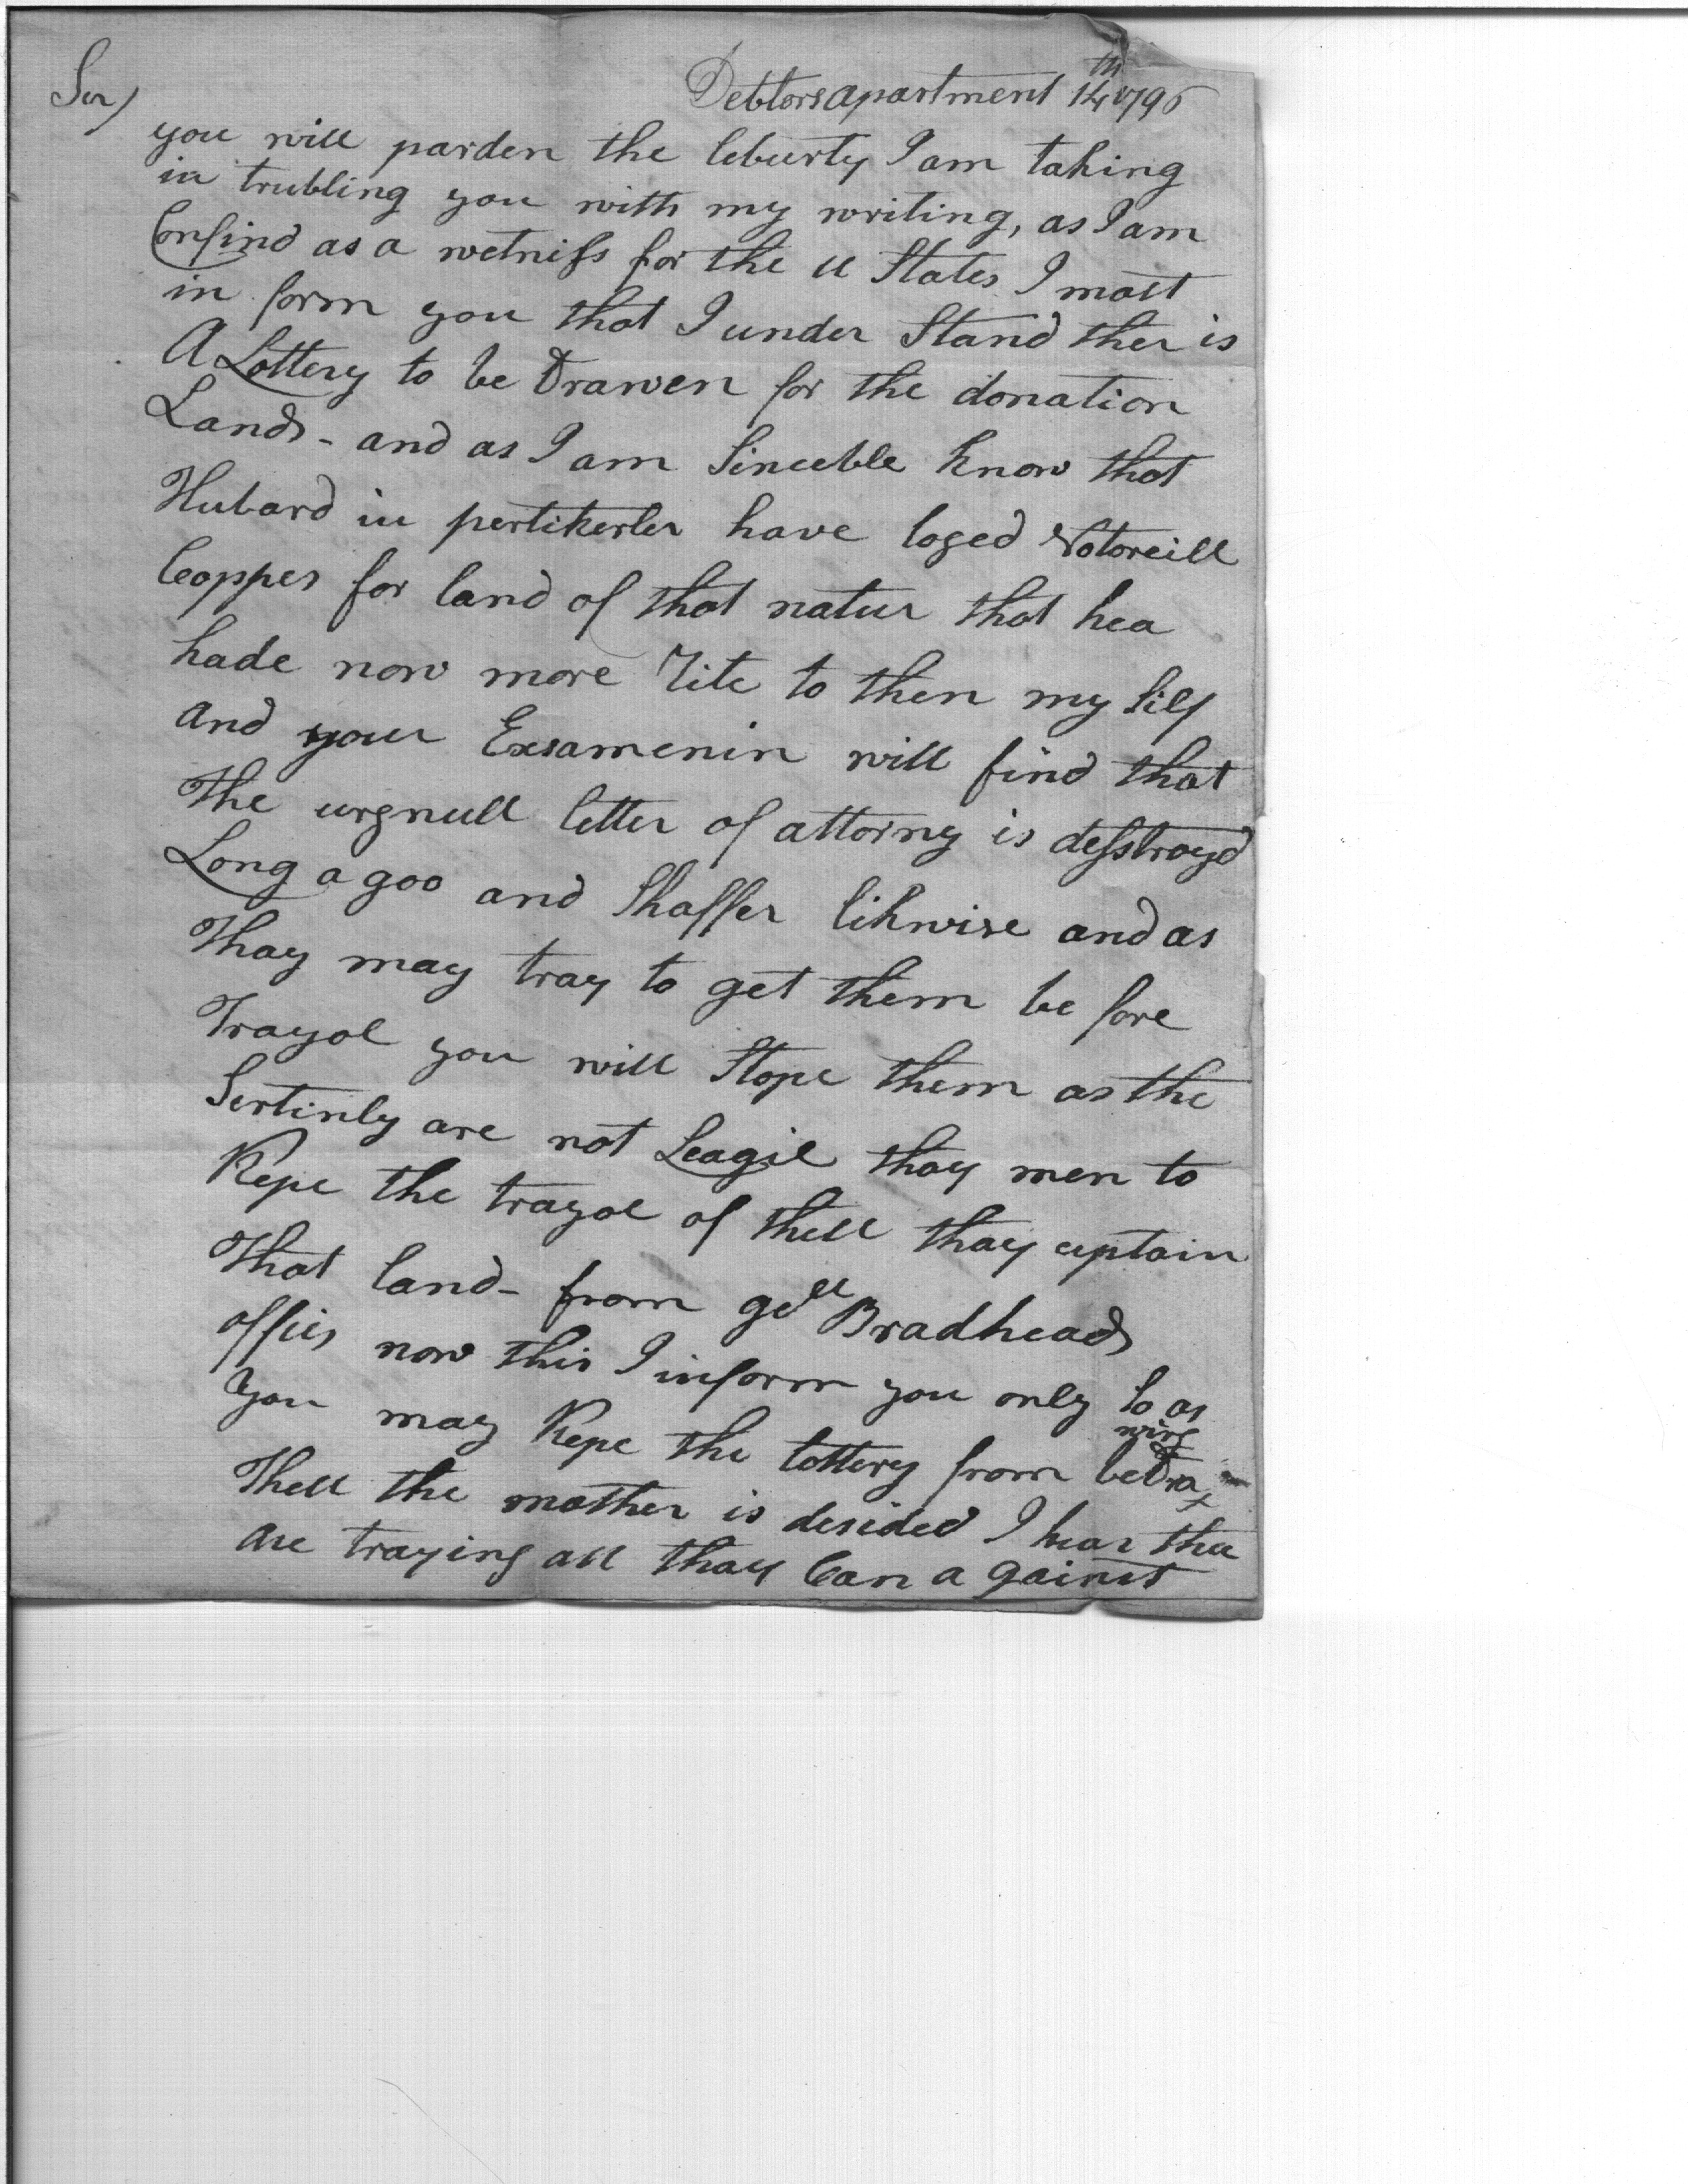 Debtors apartment 14th 1796
Ser/
you will parden the leburty I am taking
in trubling you with my writing, as I am
Confind as a wetniss for the U States I most
in form you that I under Stand ther is
A Lottery to be Drawen for the donation
Lands - and as I am Sinceble know that
Hubard in pertikerler have loged Notoreill
Coppes for land of that natur that hea
hade now more Tite to then my Silf
and your Exsamenin will find that
The urgnull letter of attorny is desstroyd
Long a goo and Shaffer likwise and as
Thay may tray to get them be fore
Trayol you will Stope them as the
Sertinly are not Leagil thay men to
Kepe the trayol of thell thay uptain
That land - from gell Bradheads
offies now this I inform you only So as
You may Kepe the lottery from be Drawing
Thell the mather is desided I hear thea
are traying all thay Can a gainst